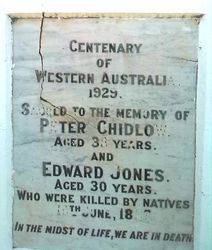 CENTENARY
OF
WESTERN AUSTRALIA
1929.
SACRED TO THE MEMORY OF
PETER CHIDLOW
AGED 38 YEARS.
AND
EDWARD JONES.
AGED 30 YEARS.
WHO WERE KILLED BY NATIVES
JUNE,
IN THE MIDST OF LIFE, WE ARE IN DEATH